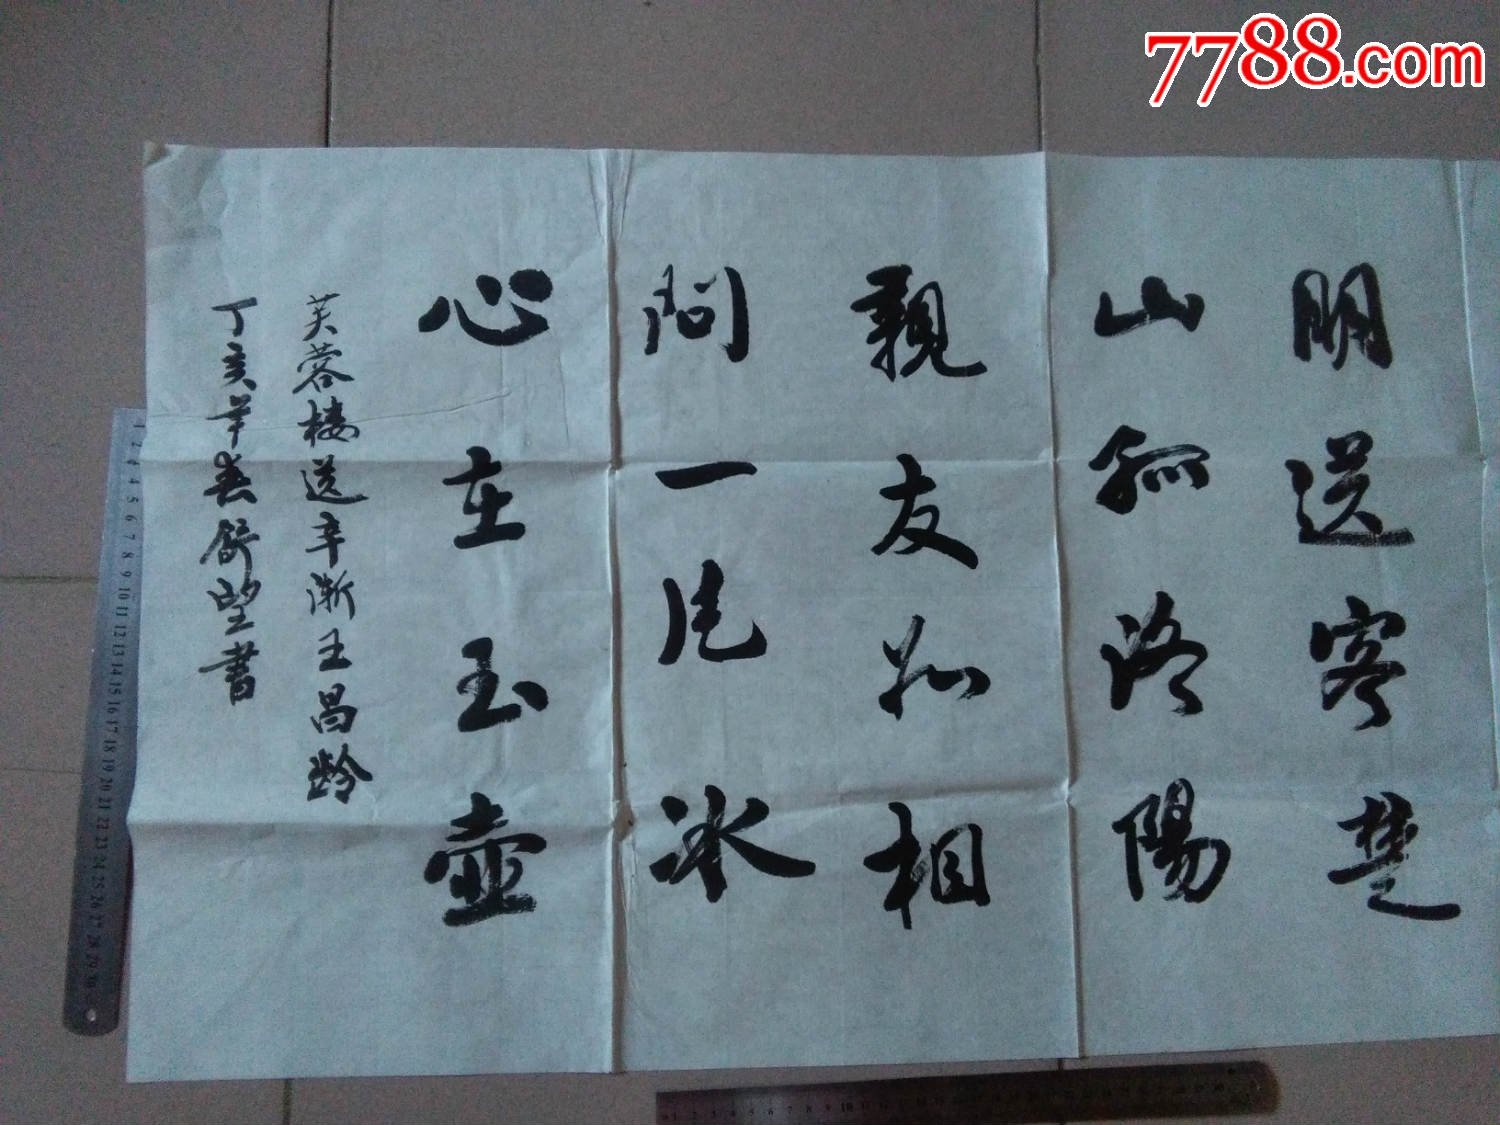 7788.com
明送客楚
山孤洛陽
親友如相
問一片冰
心在玉壺
芙蓉楼送辛渐王昌龄
丁亥年春舒望書